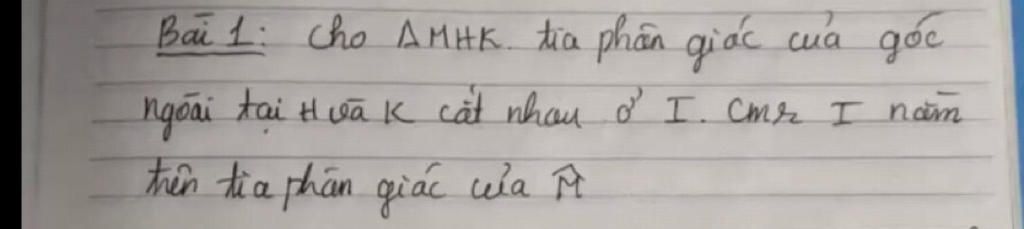 Bài 1: Cho ΔMHK. tia phân giác của góc
ngoài tại H và K cắt nhau ở I. Cmr I nằm
trên tia phân giác của M̂